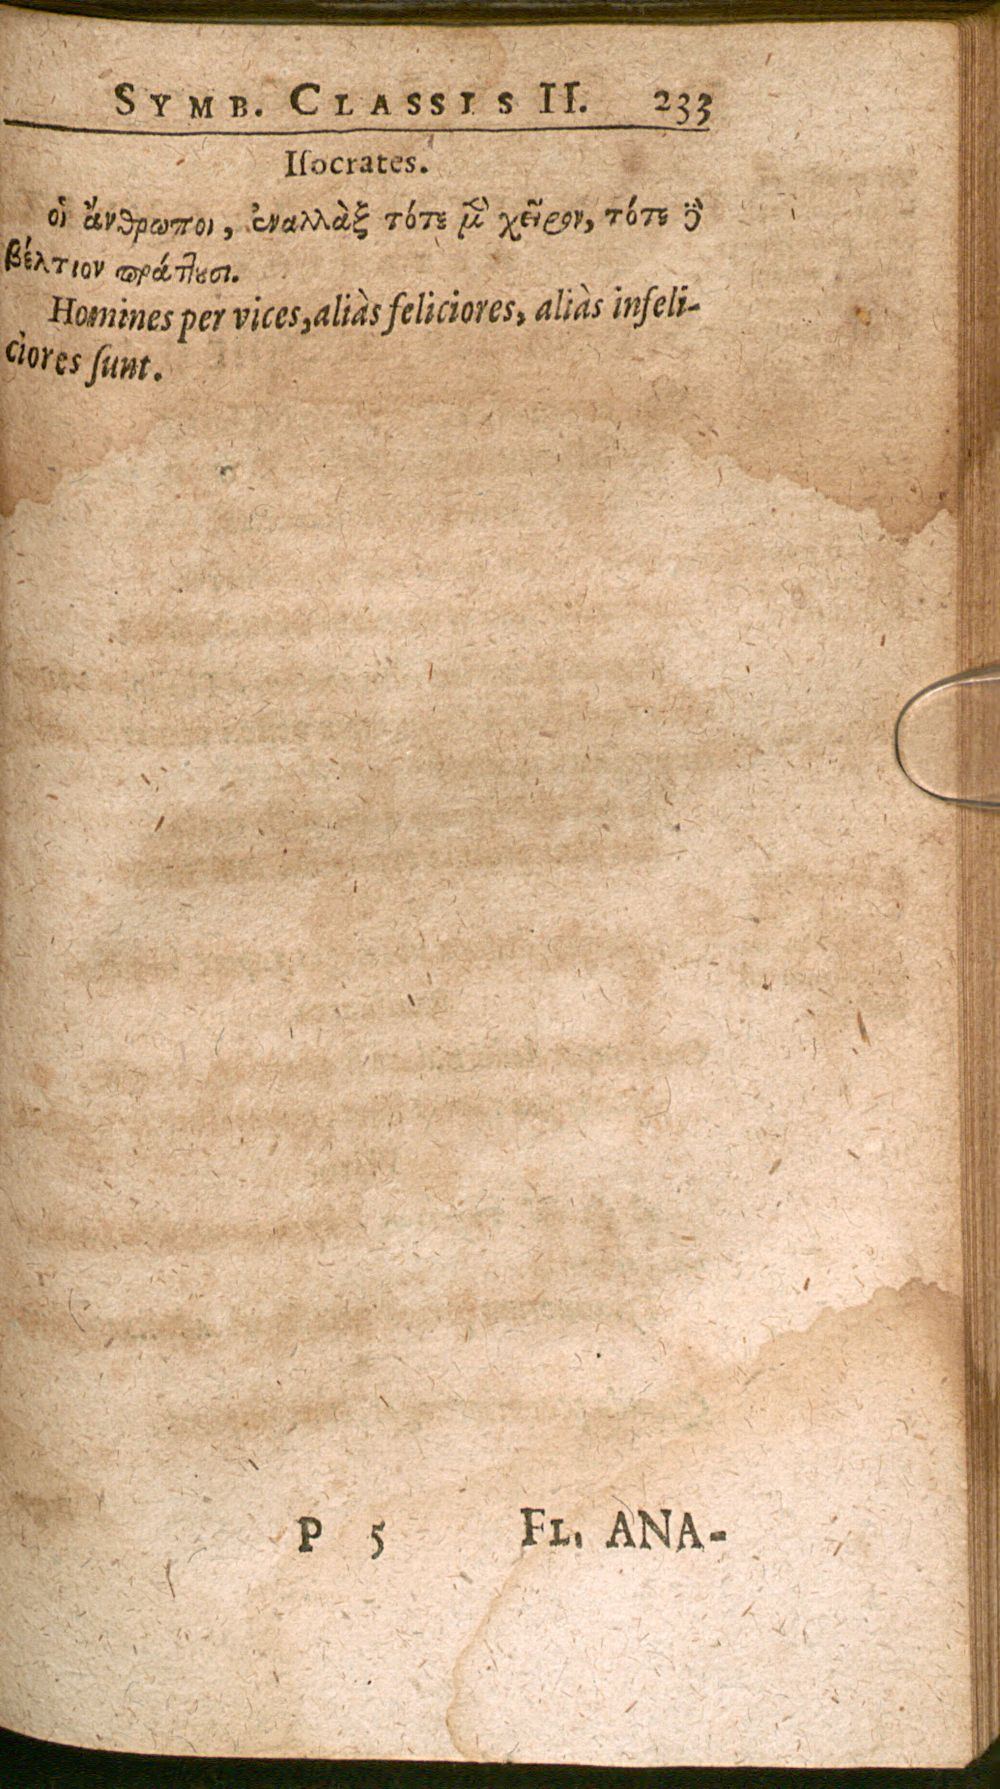 SYMB. CLASSIS II. 233
Iſocrates.
οἱ ἄνθρωποι, ἐναλλὰξ τότε μὲν χεῖρον, τότε δὲ
βέλτιον πράττουσι.
Homines per vices, aliàs feliciores, aliàs infeli-
ciores ſunt.
P 5 FL. ANA-